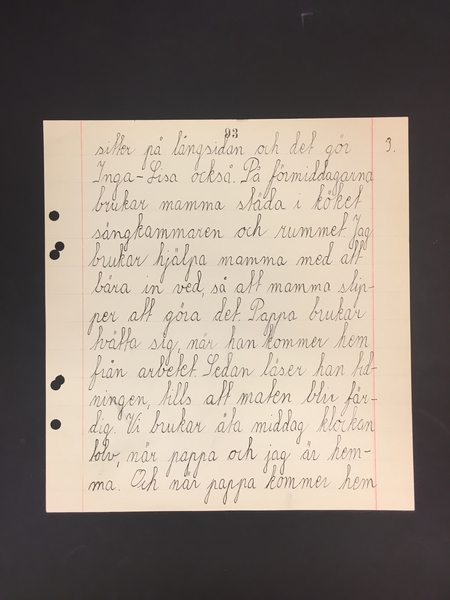 93
3.
sitter på långsidan och det gör
Inga-Lisa också. På förmiddagarna
brukar mamma städa i köket
sängkammaren och rummet. Jag
brukar hjälpa mamma med att
bära in ved, så att mamma slip-
per att göra det. Pappa brukar
tvätta sig, när han kommer hem
från arbetet. Sedan läser han tid-
ningen, tills att maten blir fär-
dig. Vi brukar äta middag klockan
tolv, när pappa och jag är hem-
ma. Och när pappa kommer hem